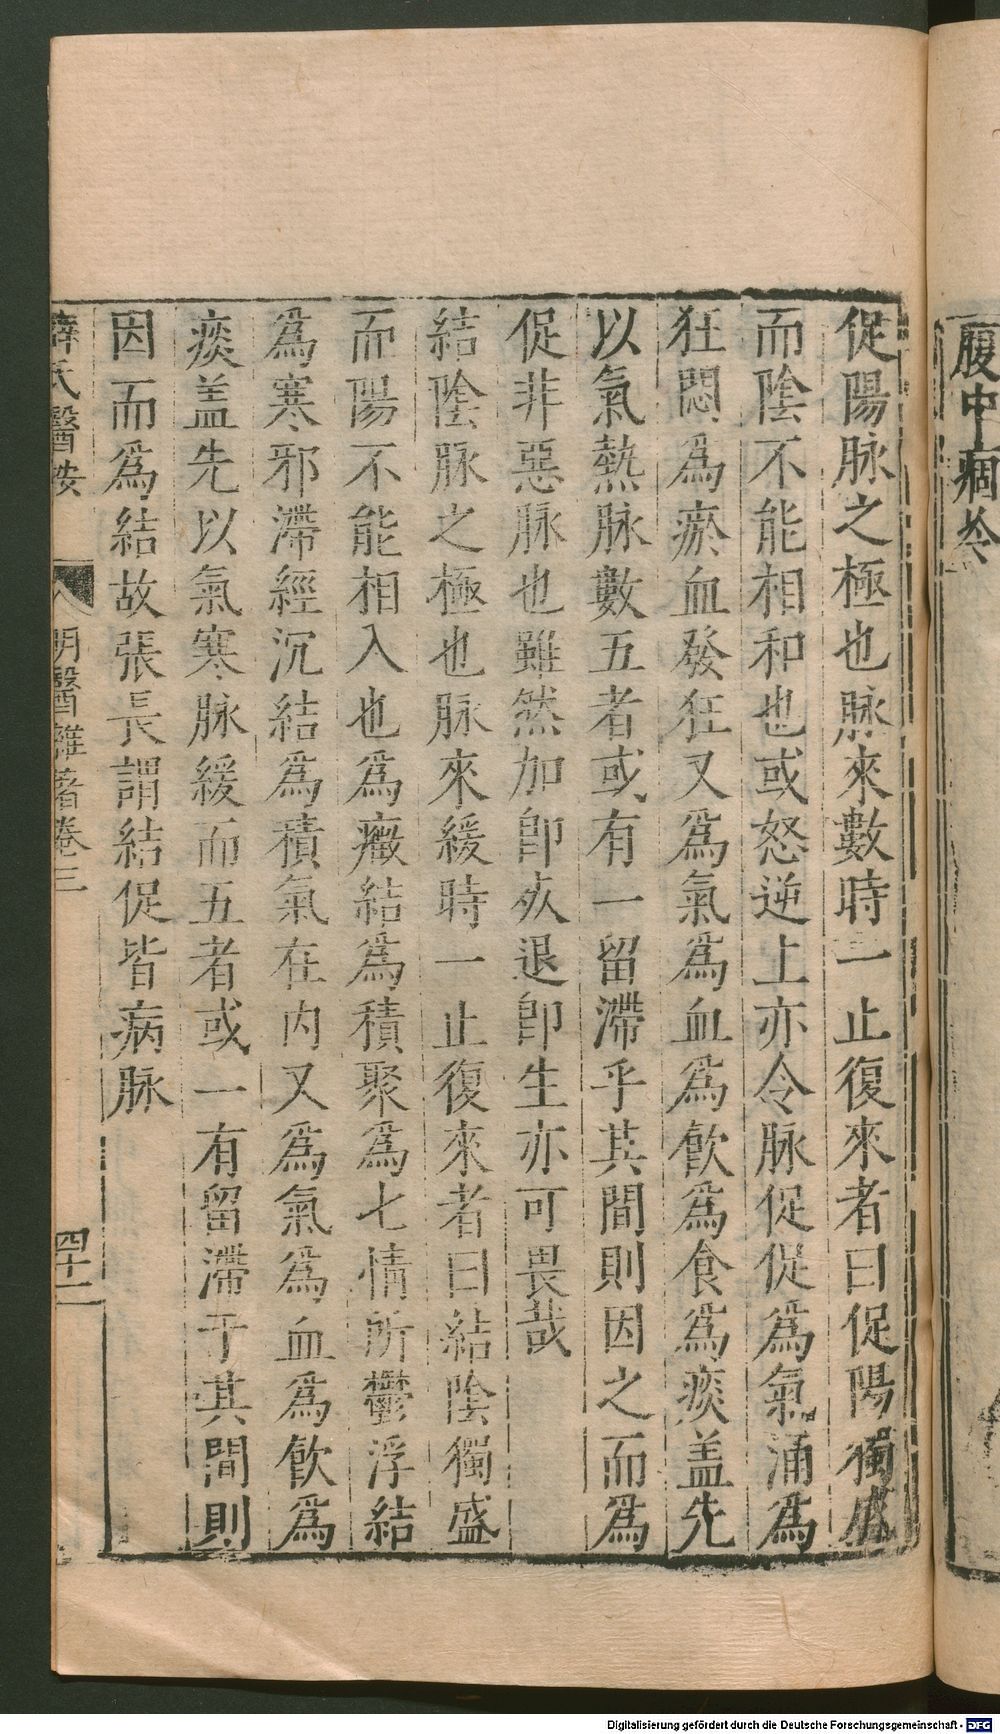 腹中痼
促陽脉之極也脉來數時一止復來者曰促陽獨盛
而陰不能相和也或怒逆上亦令脉促促爲氣涌爲
狂悶爲瘀血發狂又爲氣爲血爲飲爲食爲痰盖先
以氣熱脉數五者或有一留滯乎其間則因之而爲
促非惡脉也雖然加卽死退卽生亦可畏哉
結陰脉之極也脉來緩時一止復來者曰結陰獨盛
而陽不能相入也爲癥結爲積聚爲七情所鬱浮結
爲寒邪滯經沉結爲積氣在内又爲氣爲血爲飲爲
痰盖先以氣寒脉緩而五者或一有留滯于其間則
因而爲結故張長謂結促皆病脉
薛氏醫按 明醫雜著卷三 四十二
Digitalisierung gefördert durch die Deutsche Forschungsgemeinschaft - DFG